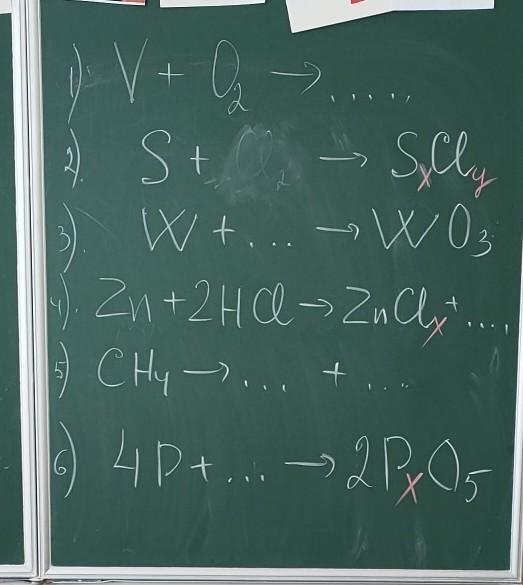 1) V + O₂ → .....
2). S + Cl₂ → SₓClᵧ
3). W + ... → WO₃
4). Zn + 2HCl → ZnClₓ + ....
5) CH₄ → ... + ....
6) 4P + ... → 2PₓO₅